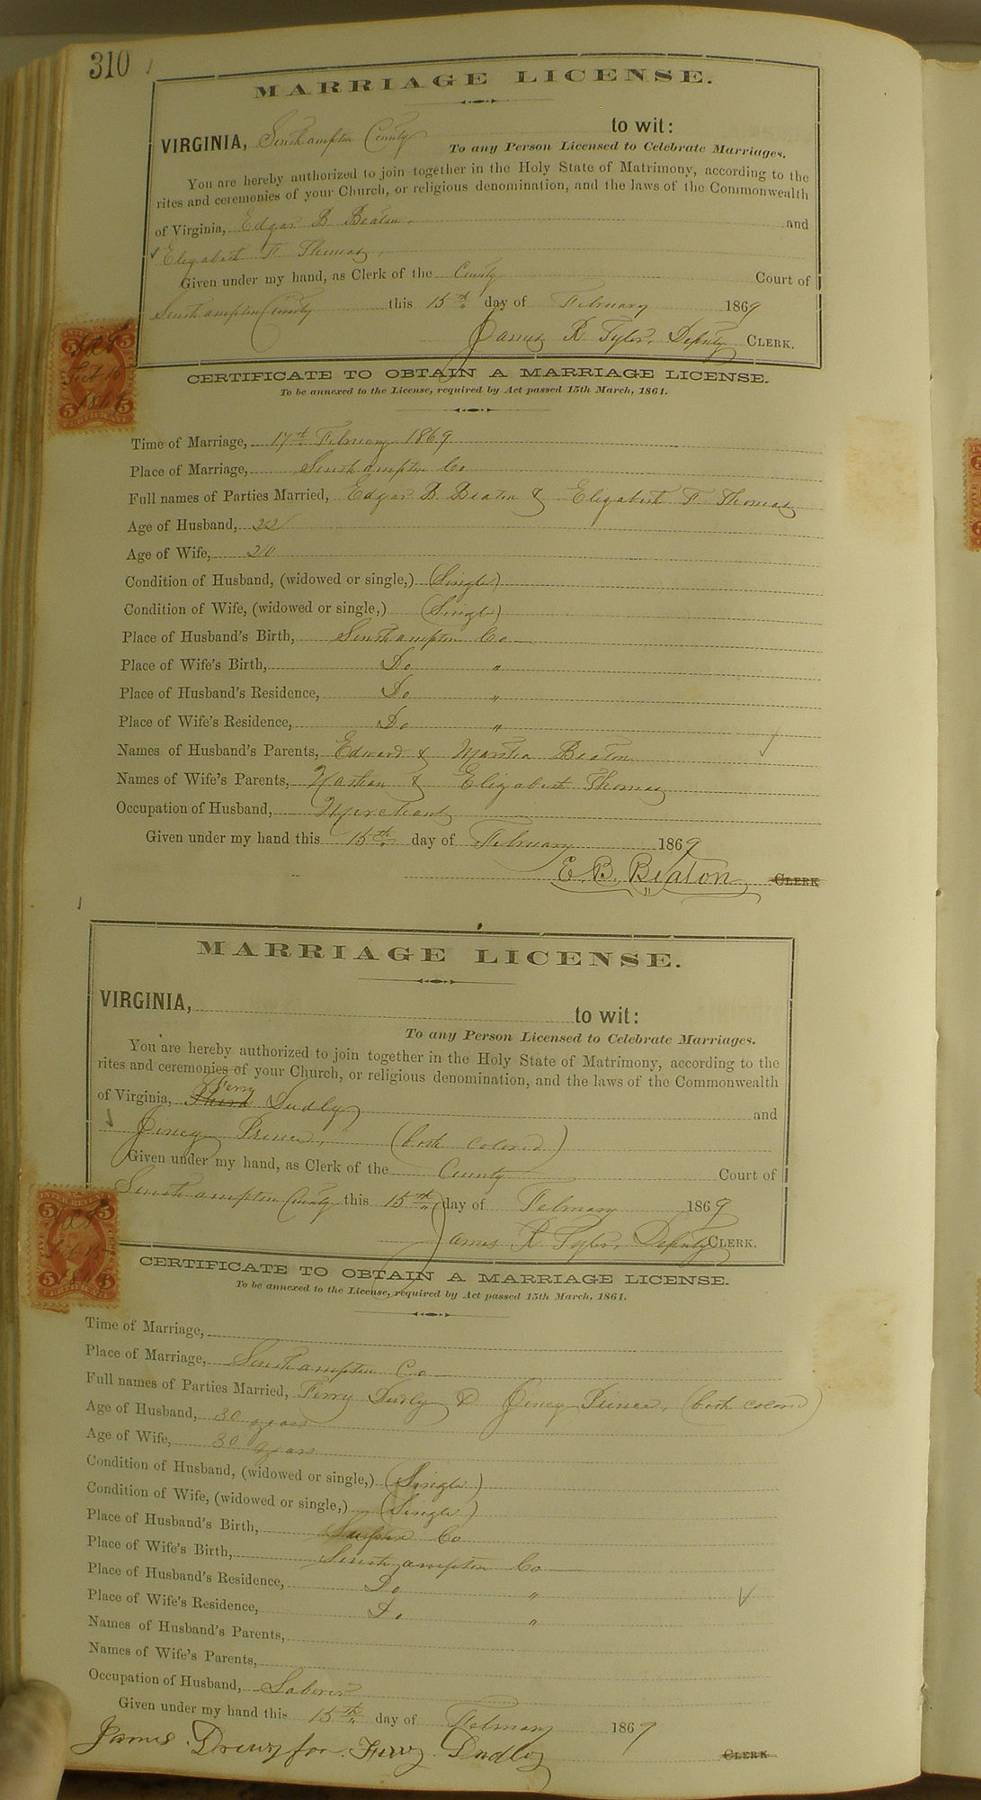 310
MARRIAGE LICENSE.
VIRGINIA, Southampton County to wit:
To any Person Licensed to Celebrate Marriages.
You are hereby authorized to join together in the Holy State of Matrimony, according to the
rites and ceremonies of your Church, or religious denomination, and the laws of the Commonwealth
of Virginia, Edgar B Beaton and
Elizabeth F. Thomas,
Given under my hand, as Clerk of the County Court of
Southampton County this 15th day of February 1869
James R Tyler, Deputy CLERK.
CERTIFICATE TO OBTAIN A MARRIAGE LICENSE.
To be annexed to the License, required by Act passed 15th March, 1861.
Time of Marriage, 17th February 1869
Place of Marriage, Southampton Co
Full names of Parties Married, Edgar B. Beaton & Elizabeth F Thomas
Age of Husband, 22
Age of Wife, 20
Condition of Husband, (widowed or single,) (Single)
Condition of Wife, (widowed or single,) (Single)
Place of Husband's Birth, Southampton Co
Place of Wife's Birth, Do "
Place of Husband's Residence, Do "
Place of Wife's Residence, Do "
Names of Husband's Parents, Edward & Martha Beaton
Names of Wife's Parents, Nathan & Elizabeth Thomas
Occupation of Husband, Merchant
Given under my hand this 15th day of February 1869
E. B. Beaton CLERK
MARRIAGE LICENSE.
VIRGINIA, to wit:
To any Person Licensed to Celebrate Marriages.
You are hereby authorized to join together in the Holy State of Matrimony, according to the
rites and ceremonies of your Church, or religious denomination, and the laws of the Commonwealth
Ferry
of Virginia, Dudly and
Jincy Prince, (both colored)
Given under my hand, as Clerk of the County Court of
Southampton County this 15th day of February 1869
James R Tyler, Deputy CLERK.
CERTIFICATE TO OBTAIN A MARRIAGE LICENSE.
To be annexed to the License, required by Act passed 15th March, 1861.
Time of Marriage,
Place of Marriage, Southampton Co
Full names of Parties Married, Ferry Dudly & Jincy Prince, (both colored)
Age of Husband, 30 years
Age of Wife, 30 years
Condition of Husband, (widowed or single,) (Single)
Condition of Wife, (widowed or single,) (Single)
Place of Husband's Birth, Co
Place of Wife's Birth, Southampton Co
Place of Husband's Residence, Do "
Place of Wife's Residence, Do "
Names of Husband's Parents,
Names of Wife's Parents,
Occupation of Husband, Laborer
Given under my hand this 15th day of February 1869
James Drewy for Ferry Dudley CLERK